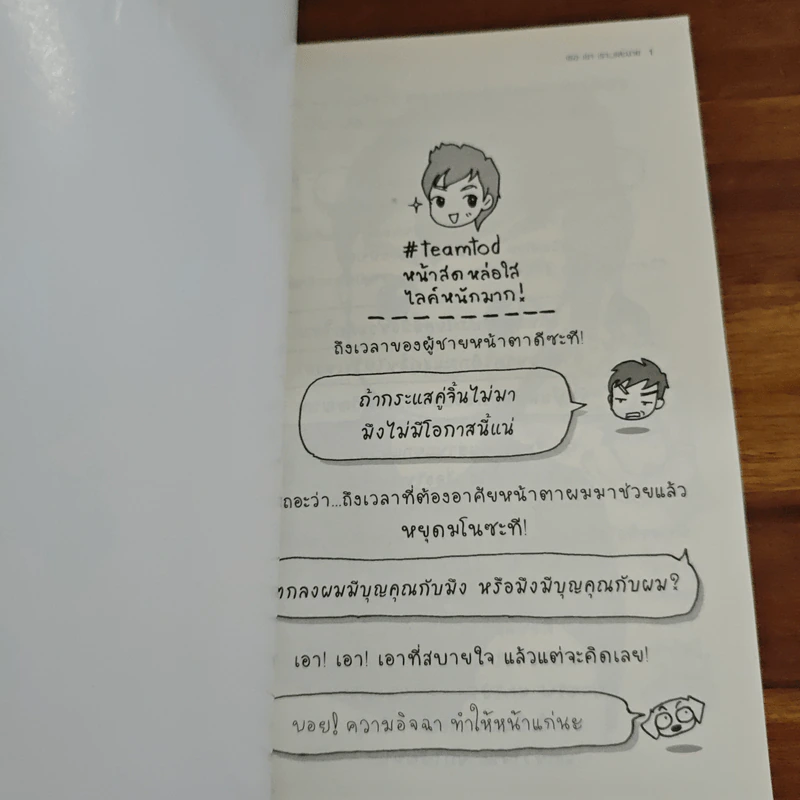 1
#teamtod
หน้าสด หล่อใส
ไลค์หนักมาก!
ถึงเวลาของผู้ชายหน้าตาดีซะที!
ถ้ากระแสคู่จิ้นไม่มา
มึงไม่มีโอกาสนี้แน่
ถอะว่า...ถึงเวลาที่ต้องอาศัยหน้าตาผมมาช่วยแล้ว
หยุดมโนซะที!
ตกลงผมมีบุญคุณกับมึง หรือมึงมีบุญคุณกับผม?
เอา! เอา! เอาที่สบายใจ แล้วแต่จะคิดเลย!
บอย! ความอิจฉา ทำให้หน้าแก่นะ